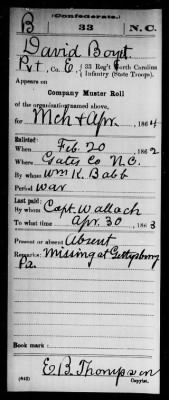 (Confederate.)
B 33 N.C.
David Boyt
Pvt, Co. E, 33 Reg't North Carolina
Infantry (State Troops).
Appears on
Company Muster Roll
of the organization named above,
for Mch & Apr, 1864
Enlisted:
When Feb. 20, 1862
Where Gates Co N.C.
By whom Wm K. Babb
Period War
Last paid:
By whom Capt. Wallach
To what time Apr. 30, 1863
Present or absent Absent
Remarks: Missing at Gettysburg
Pa.
Book mark:
E.B. Thompson
(642) Copyist.